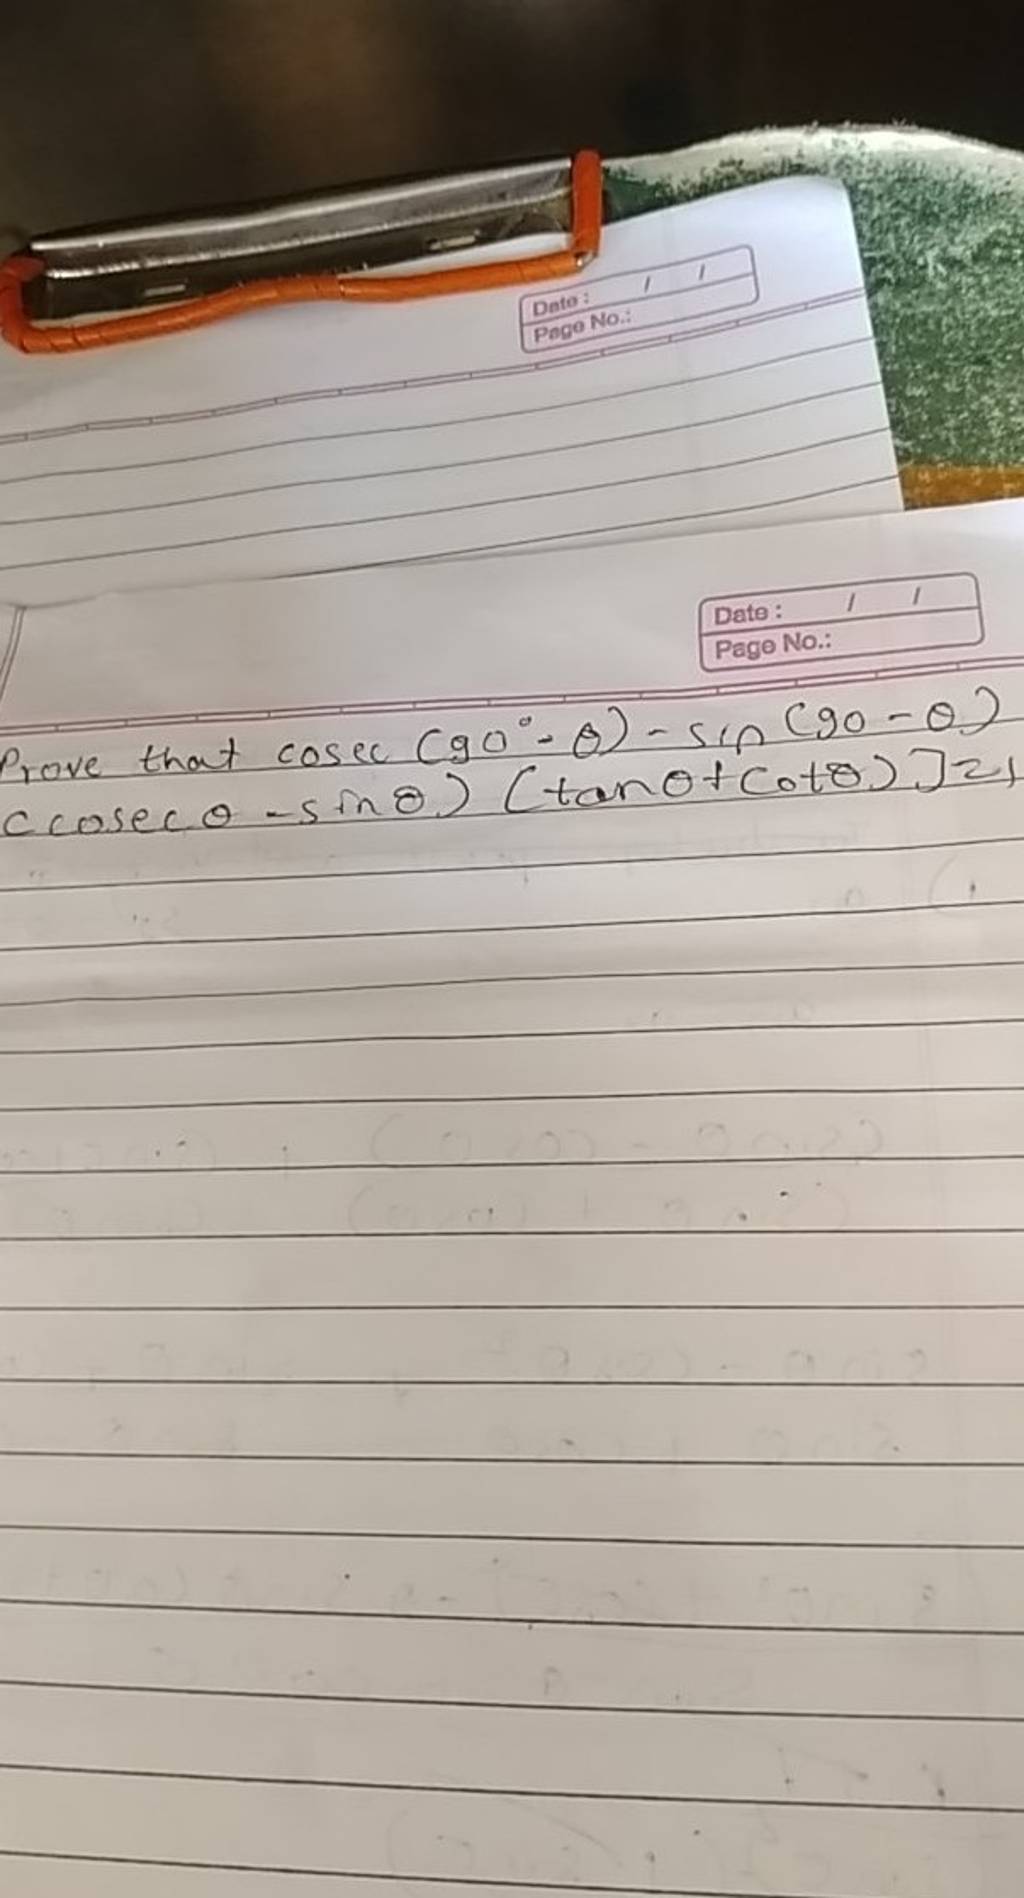 Date : / /
Page No.:
Date : / /
Page No.:
Prove that cosec (90° - θ) - sin (90 - θ)
(cosec θ - sin θ) (tan θ + cot θ) ] = 1